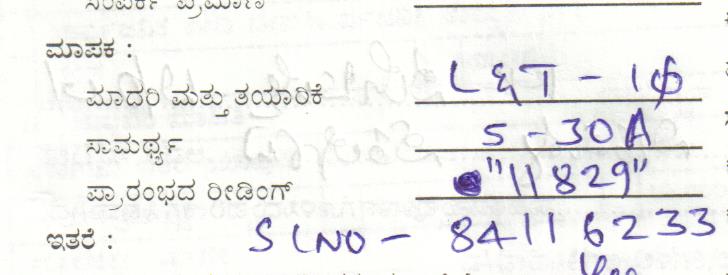 ಸಂಪರ್ಕ ಪ್ರಮಾಣ
ಮಾಪಕ :
ಮಾದರಿ ಮತ್ತು ತಯಾರಿಕೆ L&T - 1φ
ಸಾಮರ್ಥ್ಯ 5 - 30A
ಪ್ರಾರಂಭದ ರೀಡಿಂಗ್ "11829"
ಇತರೆ : SLNO - 84116233